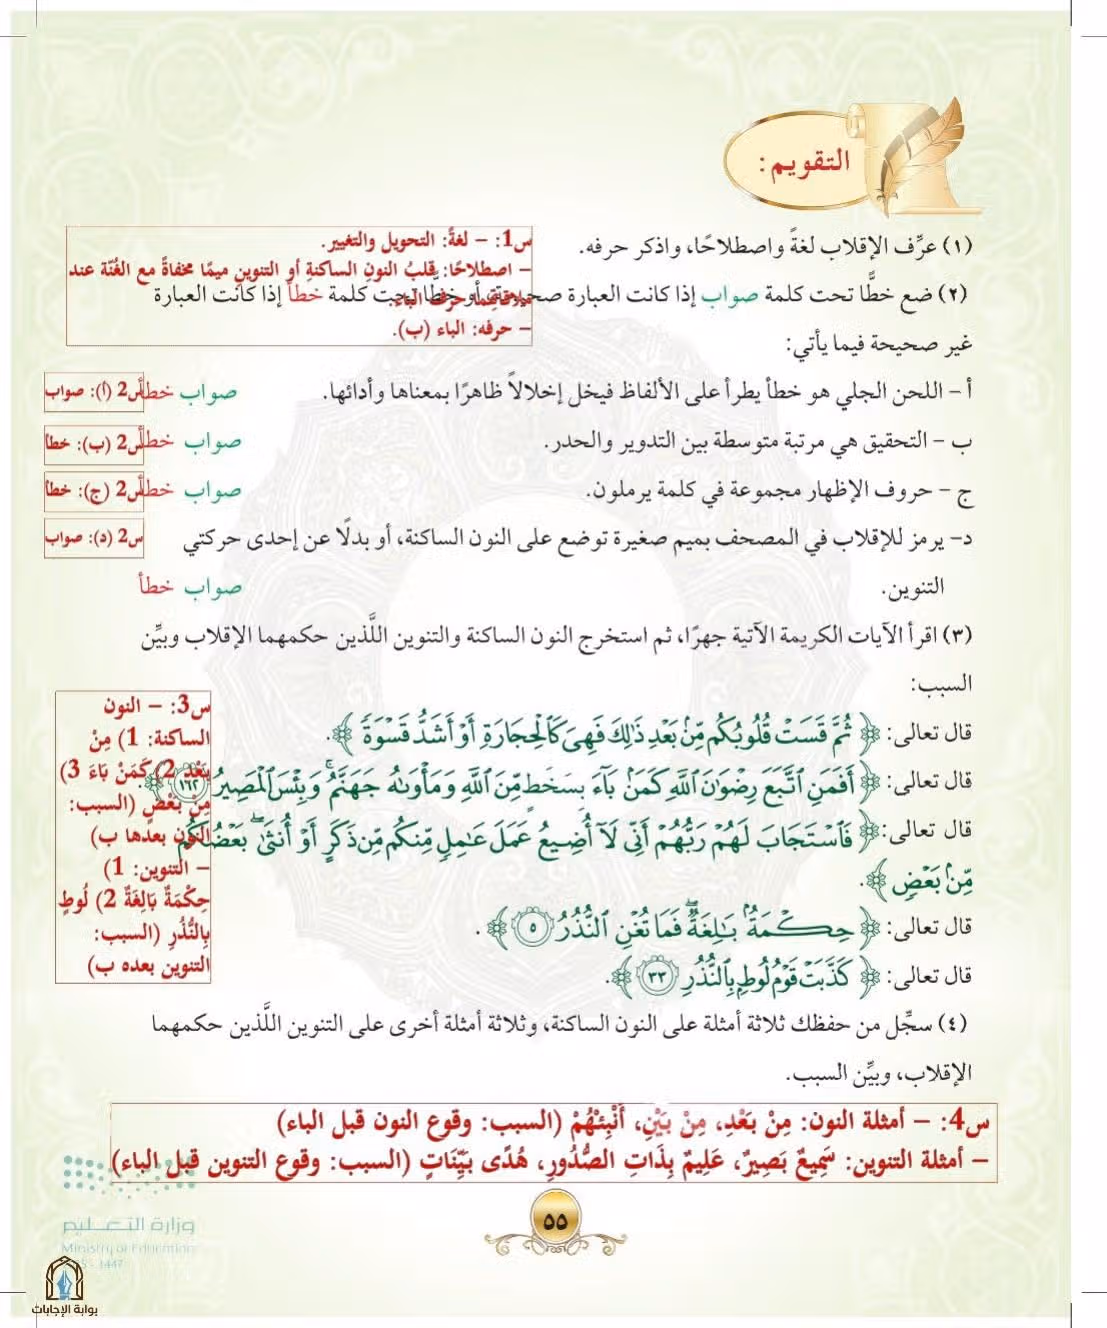 التقويم:
(١) عرِّف الإقلاب لغةً واصطلاحًا، واذكر حرفه.
س1: – لغةً: التحويل والتغيير.
– اصطلاحًا: قلبُ النونِ الساكنةِ أو التنوينِ ميمًا مخفاةً مع الغُنّة عند
ملاقاتهما حرفَ الباء.
– حرفه: الباء (ب).
(٢) ضع خطًّا تحت كلمة صواب إذا كانت العبارة صحيحة، أو خطًّا تحت كلمة خطأ إذا كانت العبارة
غير صحيحة فيما يأتي:
أ – اللحن الجلي هو خطأ يطرأ على الألفاظ فيخل إخلالاً ظاهرًا بمعناها وأدائها. صواب خطأ
س2 (أ): صواب
ب – التحقيق هي مرتبة متوسطة بين التدوير والحدر. صواب خطأ
س2 (ب): خطأ
ج – حروف الإظهار مجموعة في كلمة يرملون. صواب خطأ
س2 (ج): خطأ
د– يرمز للإقلاب في المصحف بميم صغيرة توضع على النون الساكنة، أو بدلًا عن إحدى حركتي
س2 (د): صواب
التنوين. صواب خطأ
(٣) اقرأ الآيات الكريمة الآتية جهرًا، ثم استخرج النون الساكنة والتنوين اللَّذين حكمهما الإقلاب وبيِّن
السبب:
قال تعالى: ﴿ ثُمَّ قَسَتْ قُلُوبُكُم مِّنۢ بَعْدِ ذَٰلِكَ فَهِىَ كَٱلْحِجَارَةِ أَوْ أَشَدُّ قَسْوَةً ﴾.
قال تعالى: ﴿ أَفَمَنِ ٱتَّبَعَ رِضْوَٰنَ ٱللَّهِ كَمَنۢ بَآءَ بِسَخَطٍ مِّنَ ٱللَّهِ وَمَأْوَىٰهُ جَهَنَّمُ ۚ وَبِئْسَ ٱلْمَصِيرُ ١٦٢ ﴾.
قال تعالى: ﴿ فَٱسْتَجَابَ لَهُمْ رَبُّهُمْ أَنِّى لَآ أُضِيعُ عَمَلَ عَٰمِلٍ مِّنكُم مِّن ذَكَرٍ أَوْ أُنثَىٰ ۖ بَعْضُكُم
مِّنۢ بَعْضٍ ﴾.
قال تعالى: ﴿ حِكْمَةٌۢ بَٰلِغَةٌ ۖ فَمَا تُغْنِ ٱلنُّذُرُ ٥ ﴾.
قال تعالى: ﴿ كَذَّبَتْ قَوْمُ لُوطٍۭ بِٱلنُّذُرِ ٣٣ ﴾.
س3: – النون
الساكنة: 1) مِنْ
بَعْدِ 2) كَمَنْ بَاءَ 3)
مِنْ بَعْضٍ (السبب:
النون بعدها ب)
– التنوين: 1)
حِكْمَةٌ بَالِغَةٌ 2) لُوطٍ
بِالنُّذُرِ (السبب:
التنوين بعده ب)
(٤) سجِّل من حفظك ثلاثة أمثلة على النون الساكنة، وثلاثة أمثلة أخرى على التنوين اللَّذين حكمهما
الإقلاب، وبيِّن السبب.
س4: – أمثلة النون: مِنْ بَعْدِ، مِنْ بَيْنِ، أَنْبِئْهُمْ (السبب: وقوع النون قبل الباء)
– أمثلة التنوين: سَمِيعٌ بَصِيرٌ، عَلِيمٌ بِذَاتِ الصُّدُورِ، هُدًى بَيِّنَاتٍ (السبب: وقوع التنوين قبل الباء)
٥٥
وزارة التعليم
Ministry of Education
1447
بوابة الإجابات